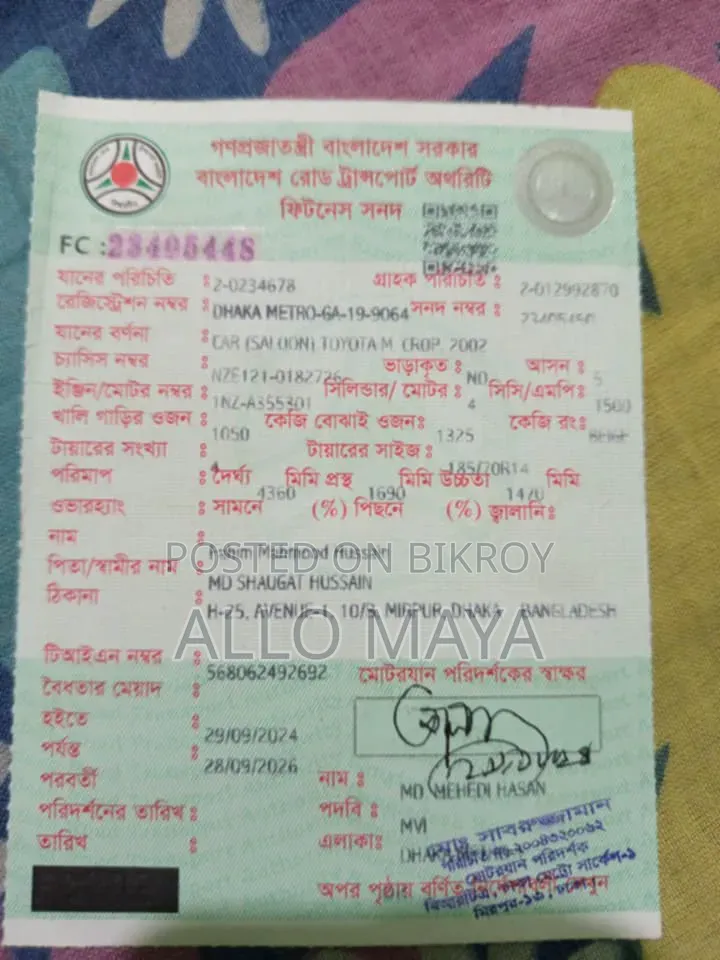 গণপ্রজাতন্ত্রী বাংলাদেশ সরকার
বাংলাদেশ রোড ট্রান্সপোর্ট অথরিটি
ফিটনেস সনদ
FC :
যানের পরিচিতি : 2-0234678 গ্রাহক পরিচিতি : 2-012992870
রেজিস্ট্রেশন নম্বর : DHAKA METRO-GA-19-9064 সনদ নম্বর :
যানের বর্ণনা : CAR (SALOON) TOYOTA M. CROP. 2002
চ্যাসিস নম্বর : NZE121-0182726 ভাড়াকৃত : NO আসন : 5
ইঞ্জিন/মোটর নম্বর : 1NZ-A355301 সিলিন্ডার/ মোটর : 4 সিসি/এমপি: 1500
খালি গাড়ির ওজন : 1050 কেজি বোঝাই ওজন: 1325 কেজি রং: BEIGE
টায়ারের সংখ্যা : 4 টায়ারের সাইজ : 185/70R14
পরিমাপ : দৈর্ঘ্য 4360 মিমি প্রস্থ 1690 মিমি উচ্চতা 1470 মিমি
ওভারহ্যাং : সামনে (%) পিছনে (%) জ্বালানি:
নাম : Mahmood Hussain
পিতা/স্বামীর নাম : MD SHAUGAT HUSSAIN
ঠিকানা : H-25, AVENUE-1, 10/B, MIRPUR, DHAKA BANGLADESH
POSTED ON BIKROY
ALLO MAYA
টিআইএন নম্বর : 568062492692 মোটরযান পরিদর্শকের স্বাক্ষর
বৈধতার মেয়াদ :
হইতে : 29/09/2024
পর্যন্ত : 28/09/2026
পরবর্তী নাম : MD MEHEDI HASAN
পরিদর্শনের তারিখ : পদবি : MVI
তারিখ : এলাকা: DHAKA
মোটরযান পরিদর্শক
অপর পৃষ্ঠায় বর্ণিত